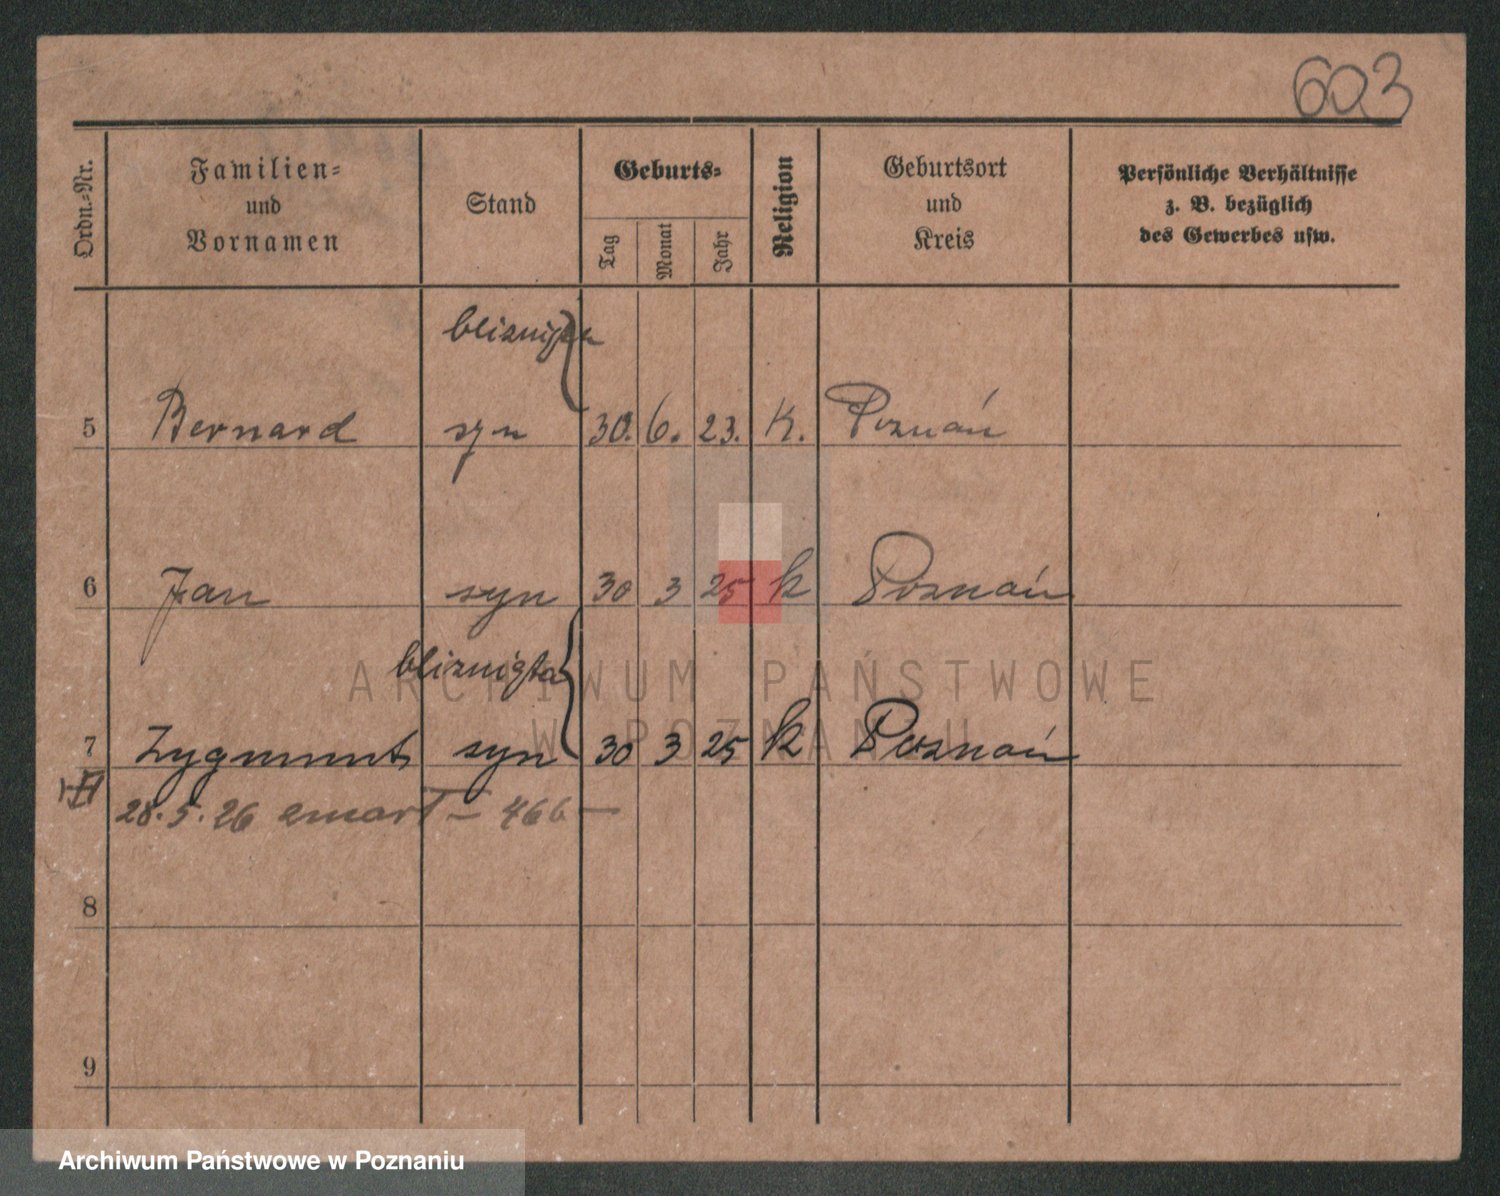 603
Ordn.-Nr.
Familien-
und
Vornamen
Stand
Geburts-
Tag
Monat
Jahr
Religion
Geburtsort
und
Kreis
Persönliche Verhältnisse
z. B. bezüglich
des Gewerbes usw.
bliznięta
5 Bernard syn 30. 6. 23. K. Poznań
6 Jan syn 30 3 25 k Poznań
bliznięta
7 Zygmunt syn 30 3 25 k Poznań
28.5.26 zmarł - 466 -
8
9
ARCHIWUM PAŃSTWOWE
W POZNANIU
Archiwum Państwowe w Poznaniu